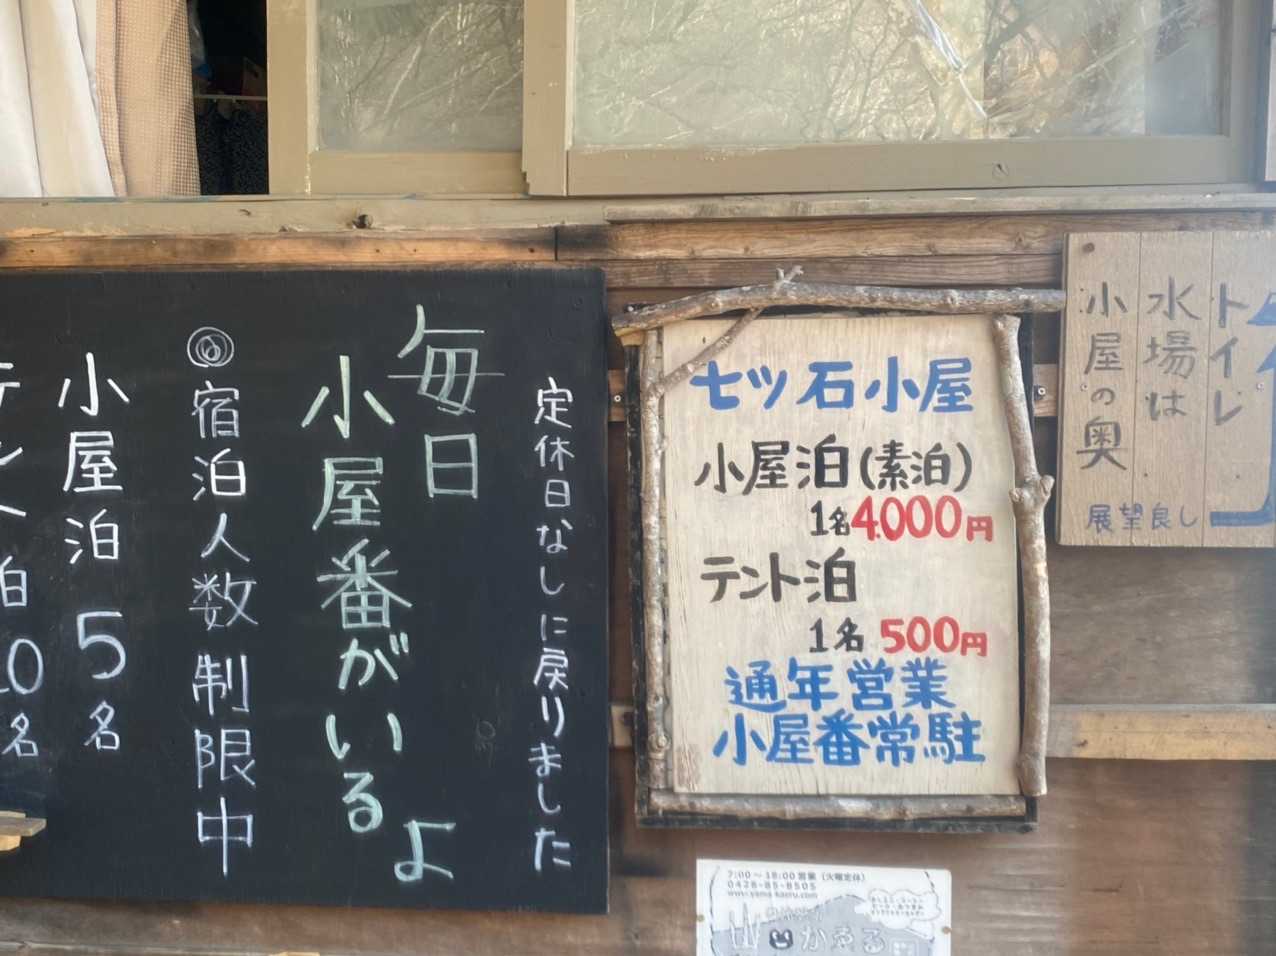 定休日なしに戻りました
毎日
小屋番がいるよ
◎宿泊人数制限中
小屋泊 5名
テント泊 10名
七ツ石小屋
小屋泊(素泊)
1名4.000円
テント泊
1名 500円
通年営業
小屋番常駐
トイレ
水場は
小屋の奥
展望良し
7:00〜18:00営業（火曜定休）
0428-85-8505
www.yama-kaeru.com
かゑる